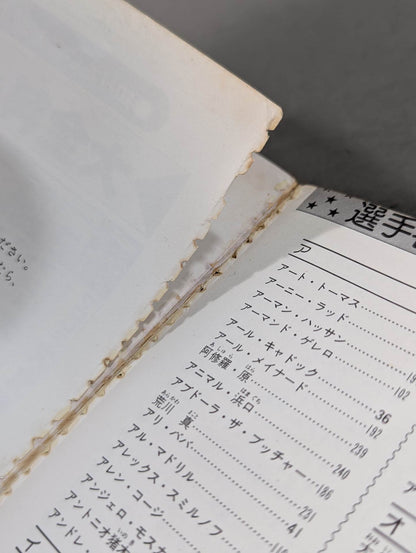 ださい。
たら、
選手
ア
アート・トーマス
アーニー・ラッド
アーマン・ハッサン
アーマンド・ゲレロ
アール・キャドック 36
アール・メイナード 192
阿修羅・原 239
アニマル・浜口 240
アブドーラ・ザ・ブッチャー 186
荒川 真 231
アリ・ババ 41
アル・マドリル
アレックス・スミルノフ
アレン・コージ
アンジェロ・モスカ
アントニオ猪木
アンドレ・
イ